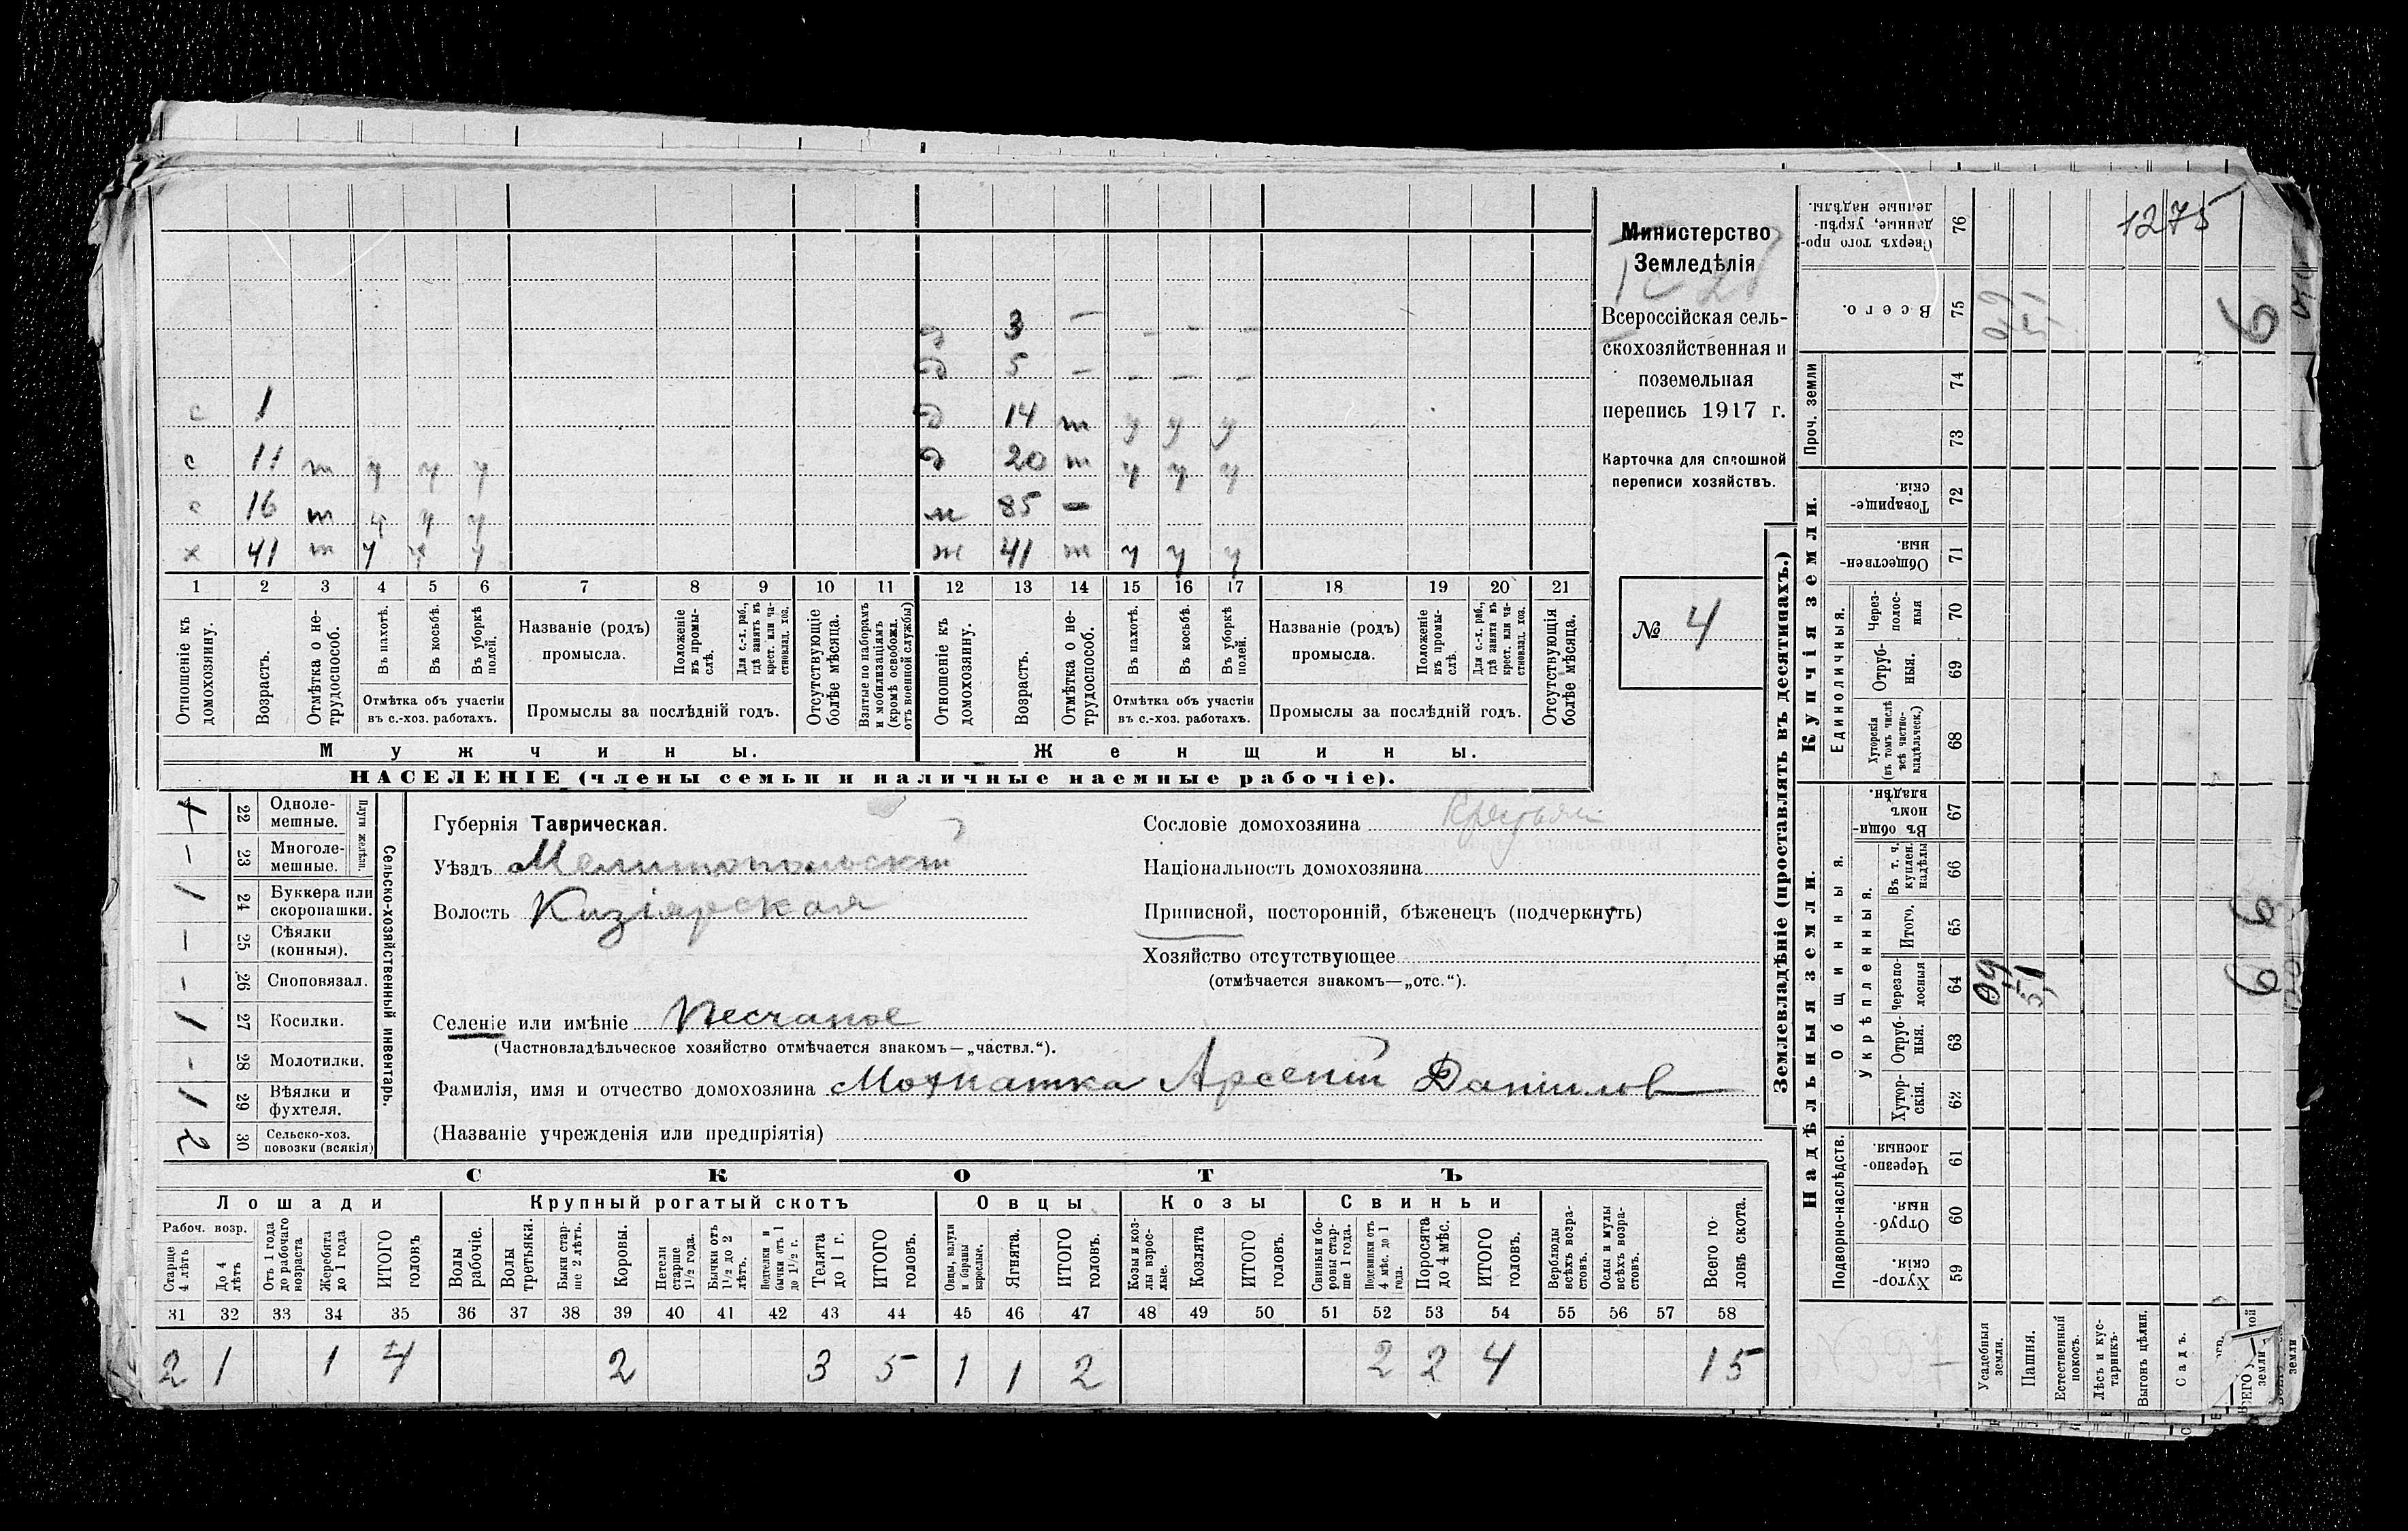 3 —
д — — —
д 5 — — — —
с 1
д 14 т у у у
с 11 т у у у
д 20 т у у у
с 16 т у у у
м 85 —
х 41 т у у у
ж 41 т у у у
1 2 3 4 5 6 7 8 9 10 11 12 13 14 15 16 17 18 19 20 21
Отношеніе къ домохозяину.
Возрастъ.
Отмѣтка о не-трудоспособ.
Въ пахотѣ.
Въ косьбѣ.
Въ уборкѣ полей.
Отмѣтка объ участіи
въ с.-хоз. работахъ.
Названіе (родъ)
промысла.
Положеніе въ промы-слѣ.
Для с.-х. раб., гдѣ занятъ въ крест. или ча-стновлад. хоз.
Промыслы за послѣдній годъ.
Отсутствующіе болѣе мѣсяца.
Взятые по наборамъ и мобилизаціямъ (кромѣ освобожд. отъ военной службы)
Отношеніе къ домохозяину.
Возрастъ.
Отмѣтка о не-трудоспособ.
Въ пахотѣ.
Въ косьбѣ.
Въ уборкѣ полей.
Отмѣтка объ участіи
въ с.-хоз. работахъ.
Названіе (родъ)
промысла.
Положеніе въ промы-слѣ.
Для с.-х. раб., гдѣ занята въ крест. или ча-стновлад. хоз.
Промыслы за послѣдній годъ.
Отсутствующія болѣе мѣсяца.
Мужчины.
Женщины.
НАСЕЛЕНІЕ (члены семьи и наличные наемные рабочіе).
Министерство
Земледѣлія
Всероссійская сель-
скохозяйственная и
поземельная
перепись 1917 г.
Карточка для сплошной
переписи хозяйствъ.
№ 4
Сельско-хозяйственный инвентарь.
Плуги желѣзн.
22 Одноле-мешные.
— 23 Многоле-мешные.
1 24 Буккера или скоропашки.
— 25 Сѣялки (конныя).
- 26 Сноповязал.
1 27 Косилки.
- 28 Молотилки.
1 29 Вѣялки и фухтеля.
2 30 Сельско-хоз. повозки (всякія)
Губернія Таврическая.
Уѣздъ Мелитопольскій
Волость Кизіярская
Селеніе или имѣніе Песчаное
(Частновладѣльческое хозяйство отмѣчается знакомъ—„частвл.“).
Фамилія, имя и отчество домохозяина Мохнатка Арсеній Даніилов
(Названіе учрежденія или предпріятія)
Сословіе домохозяина Крестьян
Національность домохозяина
Приписной, посторонній, бѣженецъ (подчеркнуть)
Хозяйство отсутствующее
(отмѣчается знакомъ—„отс.“).
СКОТЪ
Лошади
Крупный рогатый скотъ
Овцы
Козы
Свиньи
Рабоч. возр.
Старше 4 лѣтъ
До 4 лѣтъ
Отъ 1 года до рабочаго возраста
Жеребята до 1 года
ИТОГО головъ
Волы рабочіе.
Волы третьяки.
Быки стар-ше 2 лѣтъ.
Коровы.
Нетели старше 1½ года.
Бычки отъ 1½ до 2 лѣтъ.
Подтелки и бычки отъ 1 до 1½ г.
Телята до 1 г.
ИТОГО головъ.
Овцы, валухи и бараны взрослые.
Ягнята.
ИТОГО головъ.
Козы и коз-лы взрос-лые.
Козлята
ИТОГО головъ.
Свиньи и бо-ровы стар-ше 1 года.
Подсвинки отъ 4 мѣс. до 1 года.
Поросята до 4 мѣс.
ИТОГО головъ.
Верблюды всѣхъ возра-стовъ.
Ослы и мулы всѣхъ возра-стовъ.
Всего го-ловъ скота.
31 32 33 34 35 36 37 38 39 40 41 42 43 44 45 46 47 48 49 50 51 52 53 54 55 56 57 58
2 1 1 4 2 3 5 1 1 2 2 2 4 15
Землевладѣніе (проставлять въ десятинахъ.)
Надѣльныя земли.
Купчія земли.
Проч. земли
Подворно-наслѣдств.
Общинныя.
Укрѣпленныя.
Единоличныя.
Хутор-скія. 59
Отруб-ныя. 60
Черезпо-лосныя. 61
Хутор-скія. 62
Отруб-ныя. 63
Черезпо-лосныя 64
Итого. 65
Въ т. ч. куплен. надѣлы 66
Въ общин-номъ владѣн. 67
Хуторскія (въ томъ числѣ всѣ частно-владѣльческ.) 68
Отруб-ныя. 69
Через-полос-ныя 70
Обществен-ныя. 71
Товарище-скія. 72
73
74
Всего. 75
Сверхъ того про-данные, укрѣп-ленные надѣлы. 76
1275
Усадебныя земли.
Пашня.
Естественный покосъ.
Лѣсъ и кус-тарникъ.
Выгонъ цѣлин.
Садъ.